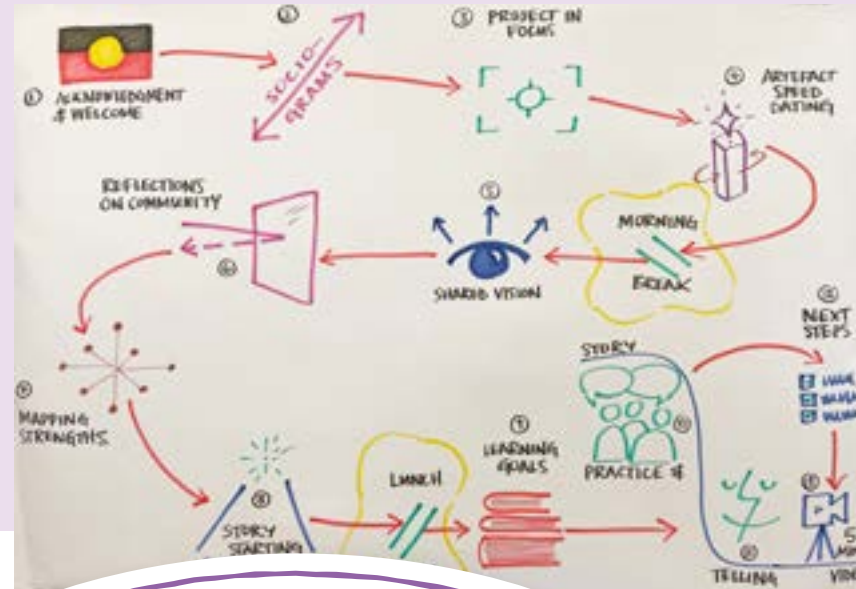 ① ACKNOWLEDGMENT
& WELCOME
②
SOCIO-
GRAMS
③ PROJECT IN
FOCUS
④ ARTEFACT
SPEED
DATING
MORNING
BREAK
⑤
SHARED VISION
REFLECTIONS
ON COMMUNITY
⑥
⑦
MAPPING
STRENGTHS
⑧
STORY
STARTING
LUNCH
⑨
LEARNING
GOALS
STORY
⑩
PRACTICE &
TELLING
NEXT
STEPS